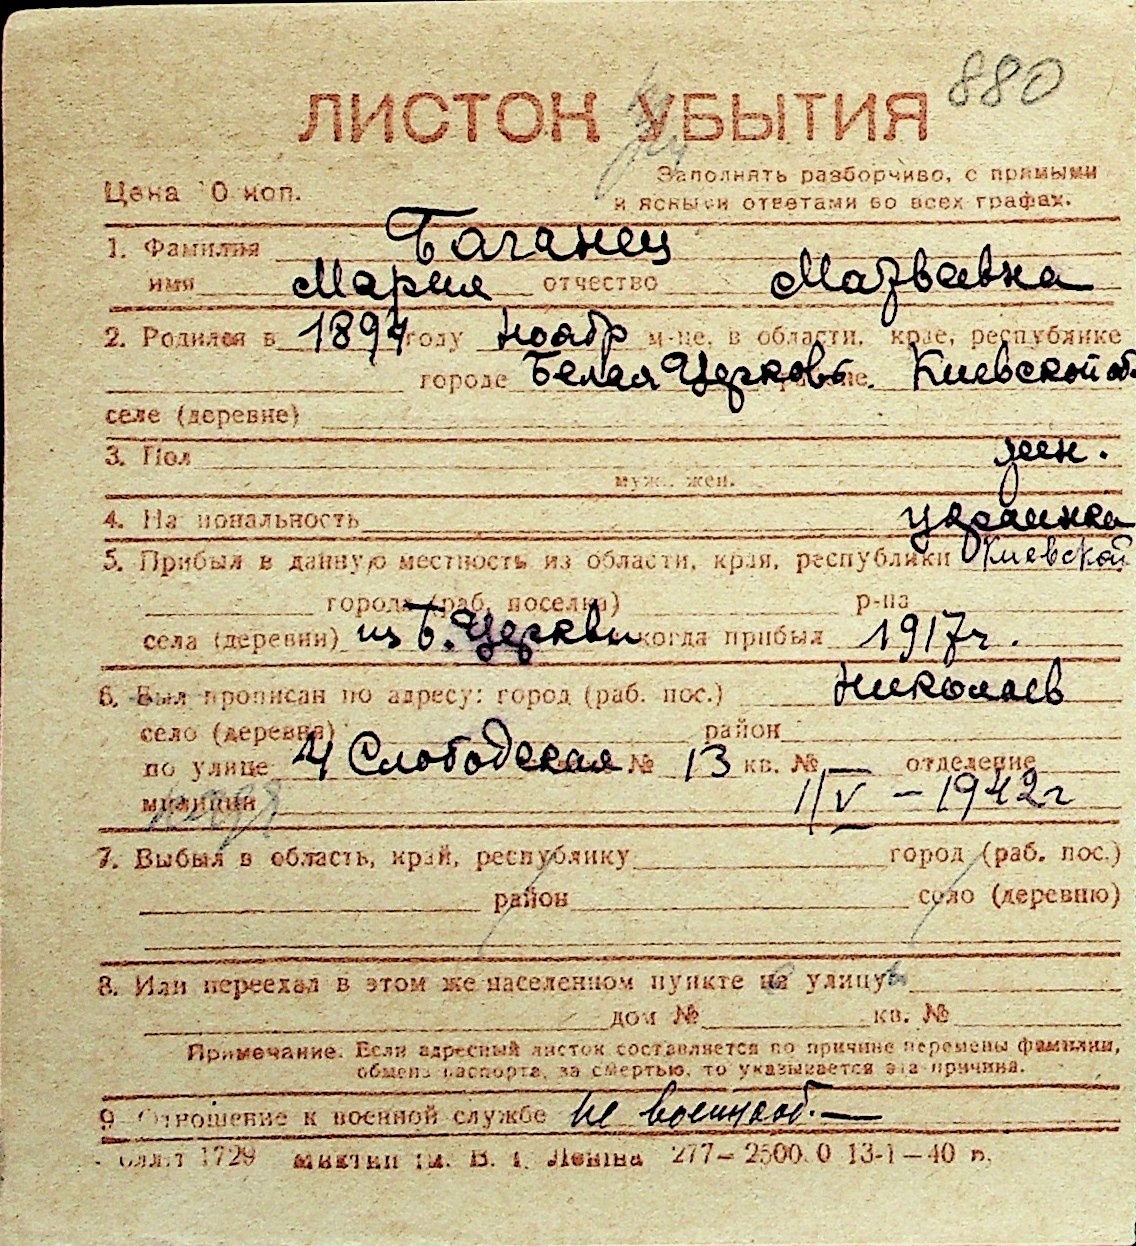 880
ЛИСТОК УБЫТИЯ
Заполнять разборчиво, с прямыми
Цена 10 коп.
и ясными ответами во всех графах.
1. Фамилия Баганец
имя Мария отчество Матвеевна
2. Родился в 1894 году ноябр м-це, в области, крае, республике
городе Белая Церковь. Киевской об.
селе (деревне)
3. Пол жен.
муж. жен.
4. Национальность украинка
5. Прибыл в данную местность из области, края, республики Киевской
города (раб. поселка) р-на
села (деревни) из Б. Церкви когда прибыл 1917 г.
6. Был прописан по адресу: город (раб. пос.) Николаев
село (деревня) район
по улице 4 Слободская № 13 кв. № отделение
милиции 1/V – 1942 г
7. Выбыл в область, край, республику город (раб. пос.)
район село (деревню)
8. Или переехал в этом же населенном пункте на улицу
дом № кв. №
Примечание: Если адресный листок составляется по причине перемены фамилии,
обмена паспорта, за смертью, то указывается эта причина.
9 Отношение к военной службе не военнооб.—
1729 ім. В. І. Леніна 277–2500.0 13-1–40 р.